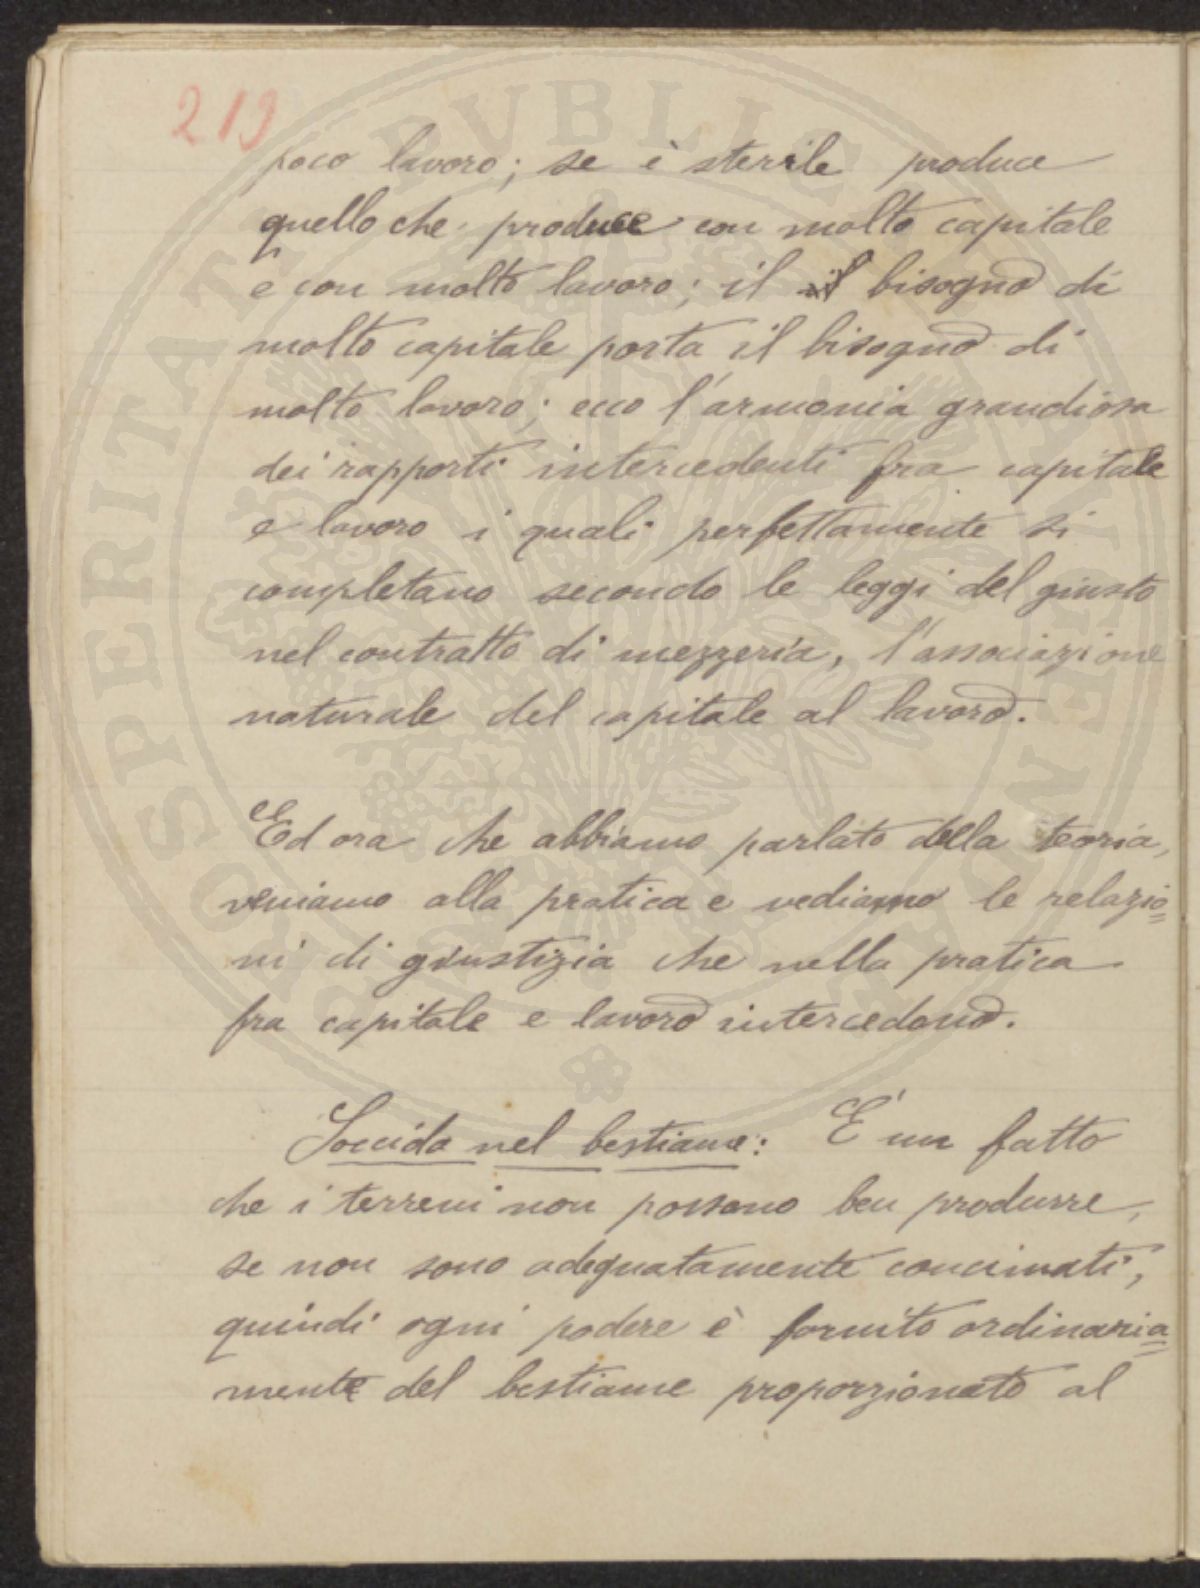 219
poco lavoro; se è sterile produce
quello che produce con molto capitale
e con molto lavoro; il il bisogno di
molto capitale porta il bisogno di
molto lavoro; ecco l'armonia grandiosa
dei rapporti intercedenti fra capitale
e lavoro i quali perfettamente si
completano secondo le leggi del giusto
nel contratto di mezzeria, l'associazione
naturale del capitale al lavoro.
Ed ora che abbiamo parlato della teoria,
veniamo alla pratica e vediamo le relazio=
ni di giustizia che nella pratica
fra capitale e lavoro intercedono.
Soccida nel bestiame: E' un fatto
che i terreni non possono ben produrre,
se non sono adeguatamente concimati,
quindi ogni podere è fornito ordinaria=
mente del bestiame proporzionato al